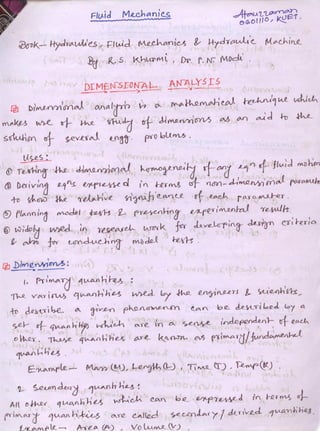 Fluid Mechanics
060110, KUET.
Book- Hydraulics, Fluid Mechanics & Hydraulic Machine
By R.S. Khurmi, Dr. P.N. Modi
DIMENSIONAL ANALYSIS
Dimensional analysis is a mathematical technique which
makes use of the study of dimensions as an aid to the
solution of several engg. problems.
Uses:
① Testing the dimensional homogeneity of any eqn of fluid motion
② Deriving eqns expressed in terms of non-dimensional paramete
to show the relative significance of each parameter.
③ Planning model tests & presenting experimental results
④ Widely used in research work for developing design criteria
& also for conducting model tests.
Dimensions:
1. Primary quantities:
The various quantities used by the engineers & scientists,
to describe a given phenomenon can be described by a
set of quantities which are in a sense independent of each
other. These quantities are known as primary/fundamental
quantities.
Example- Mass(M), Length(L), Time(T), Temp(θ).
2. Secondary quantities:
All other quantities which can be expressed in terms of
primary quantities are called secondary/derived quantities
Example- Area (A), Volume(V)